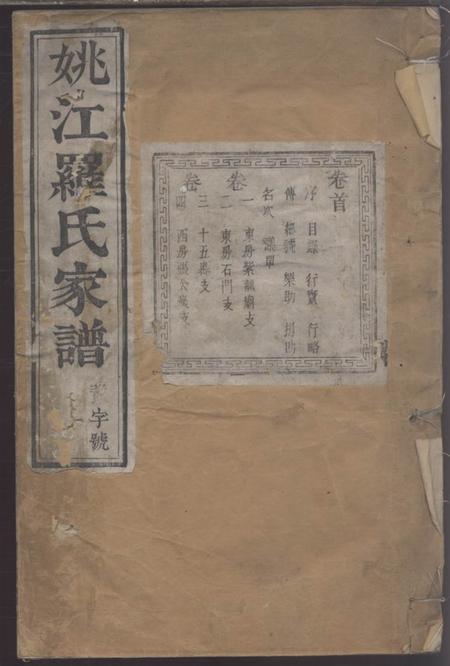 姚江羅氏家譜
字號
卷首
序 目錄 行實 行略
傳 樂助 捐助
名次 單
卷一 東房紫龍廟支
二 東房石門支
卷三 十五支
四 西房公支